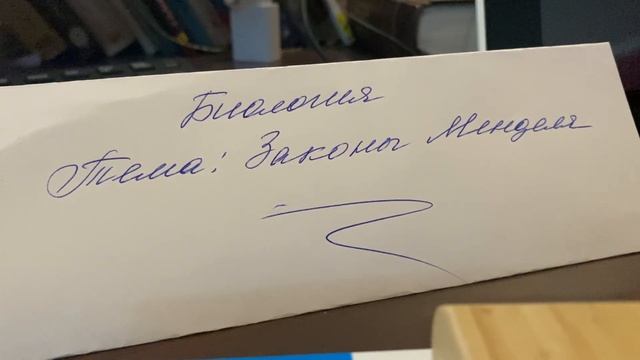 Биология
Тема: Законы Менделя